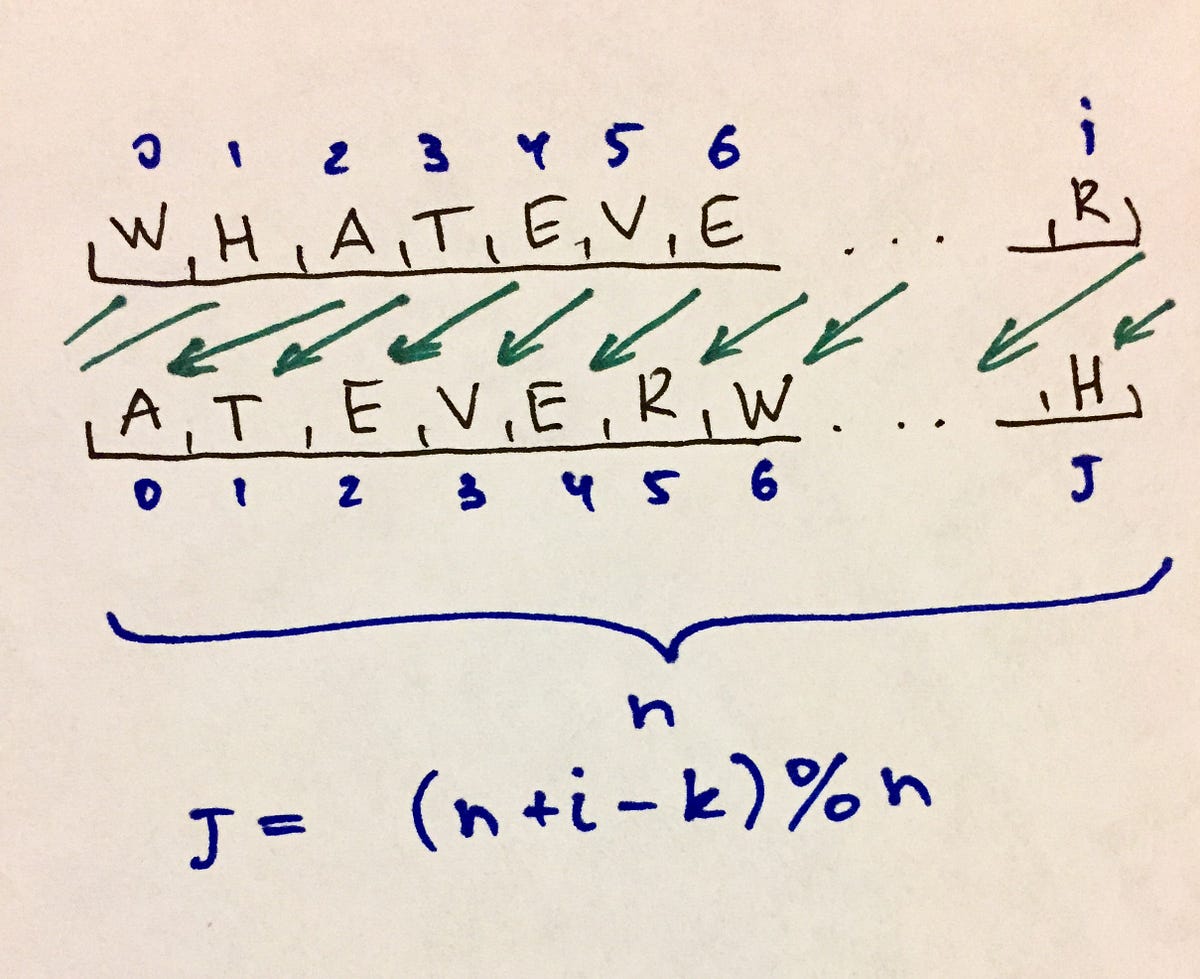 0 1 2 3 4 5 6 i
W H A T E V E ... R
A T E V E R W ... H
0 1 2 3 4 5 6 J
n
J = (n+i-k)%n